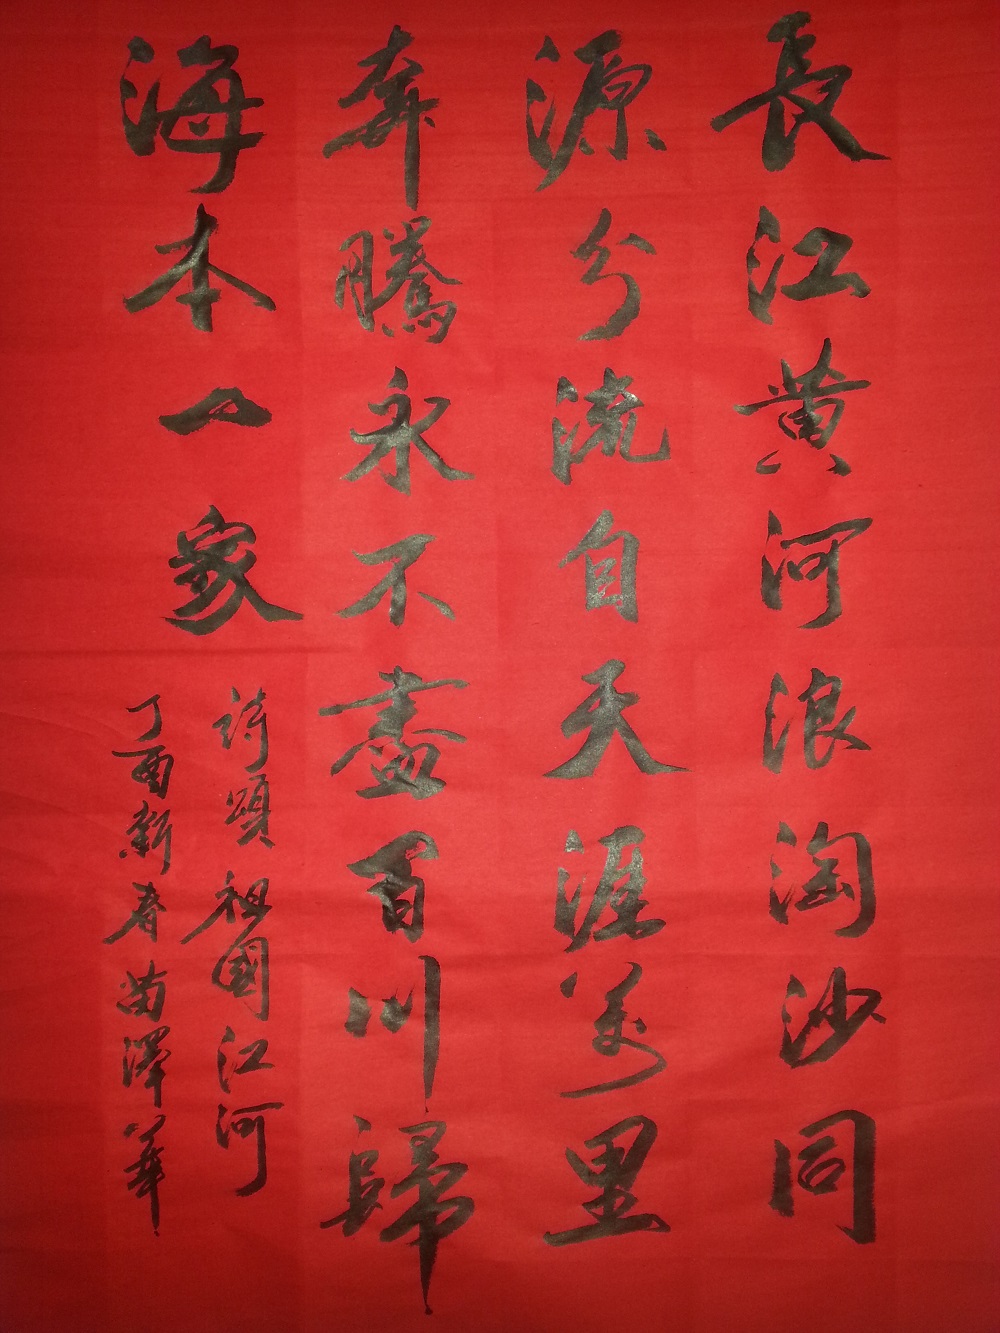 長江黄河浪淘沙同
源分流自天涯萬里
奔騰永不盡百川歸
海本一家
詩頌祖國江河
丁酉新春苗澤華